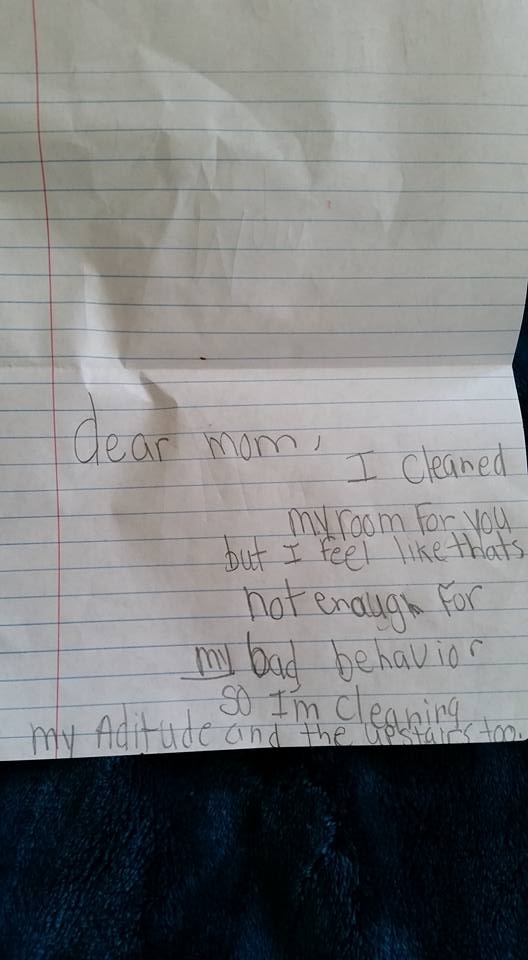 dear mom,
I cleaned
my room for you
but I feel like thats
not enaugh for
my bad behavior
so I'm cleaning
my Aditude and the upstairs too.